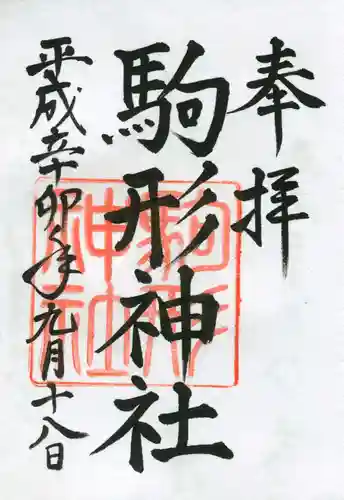 奉拝
駒形神社
平成辛卯年九月十八日
駒形
神社